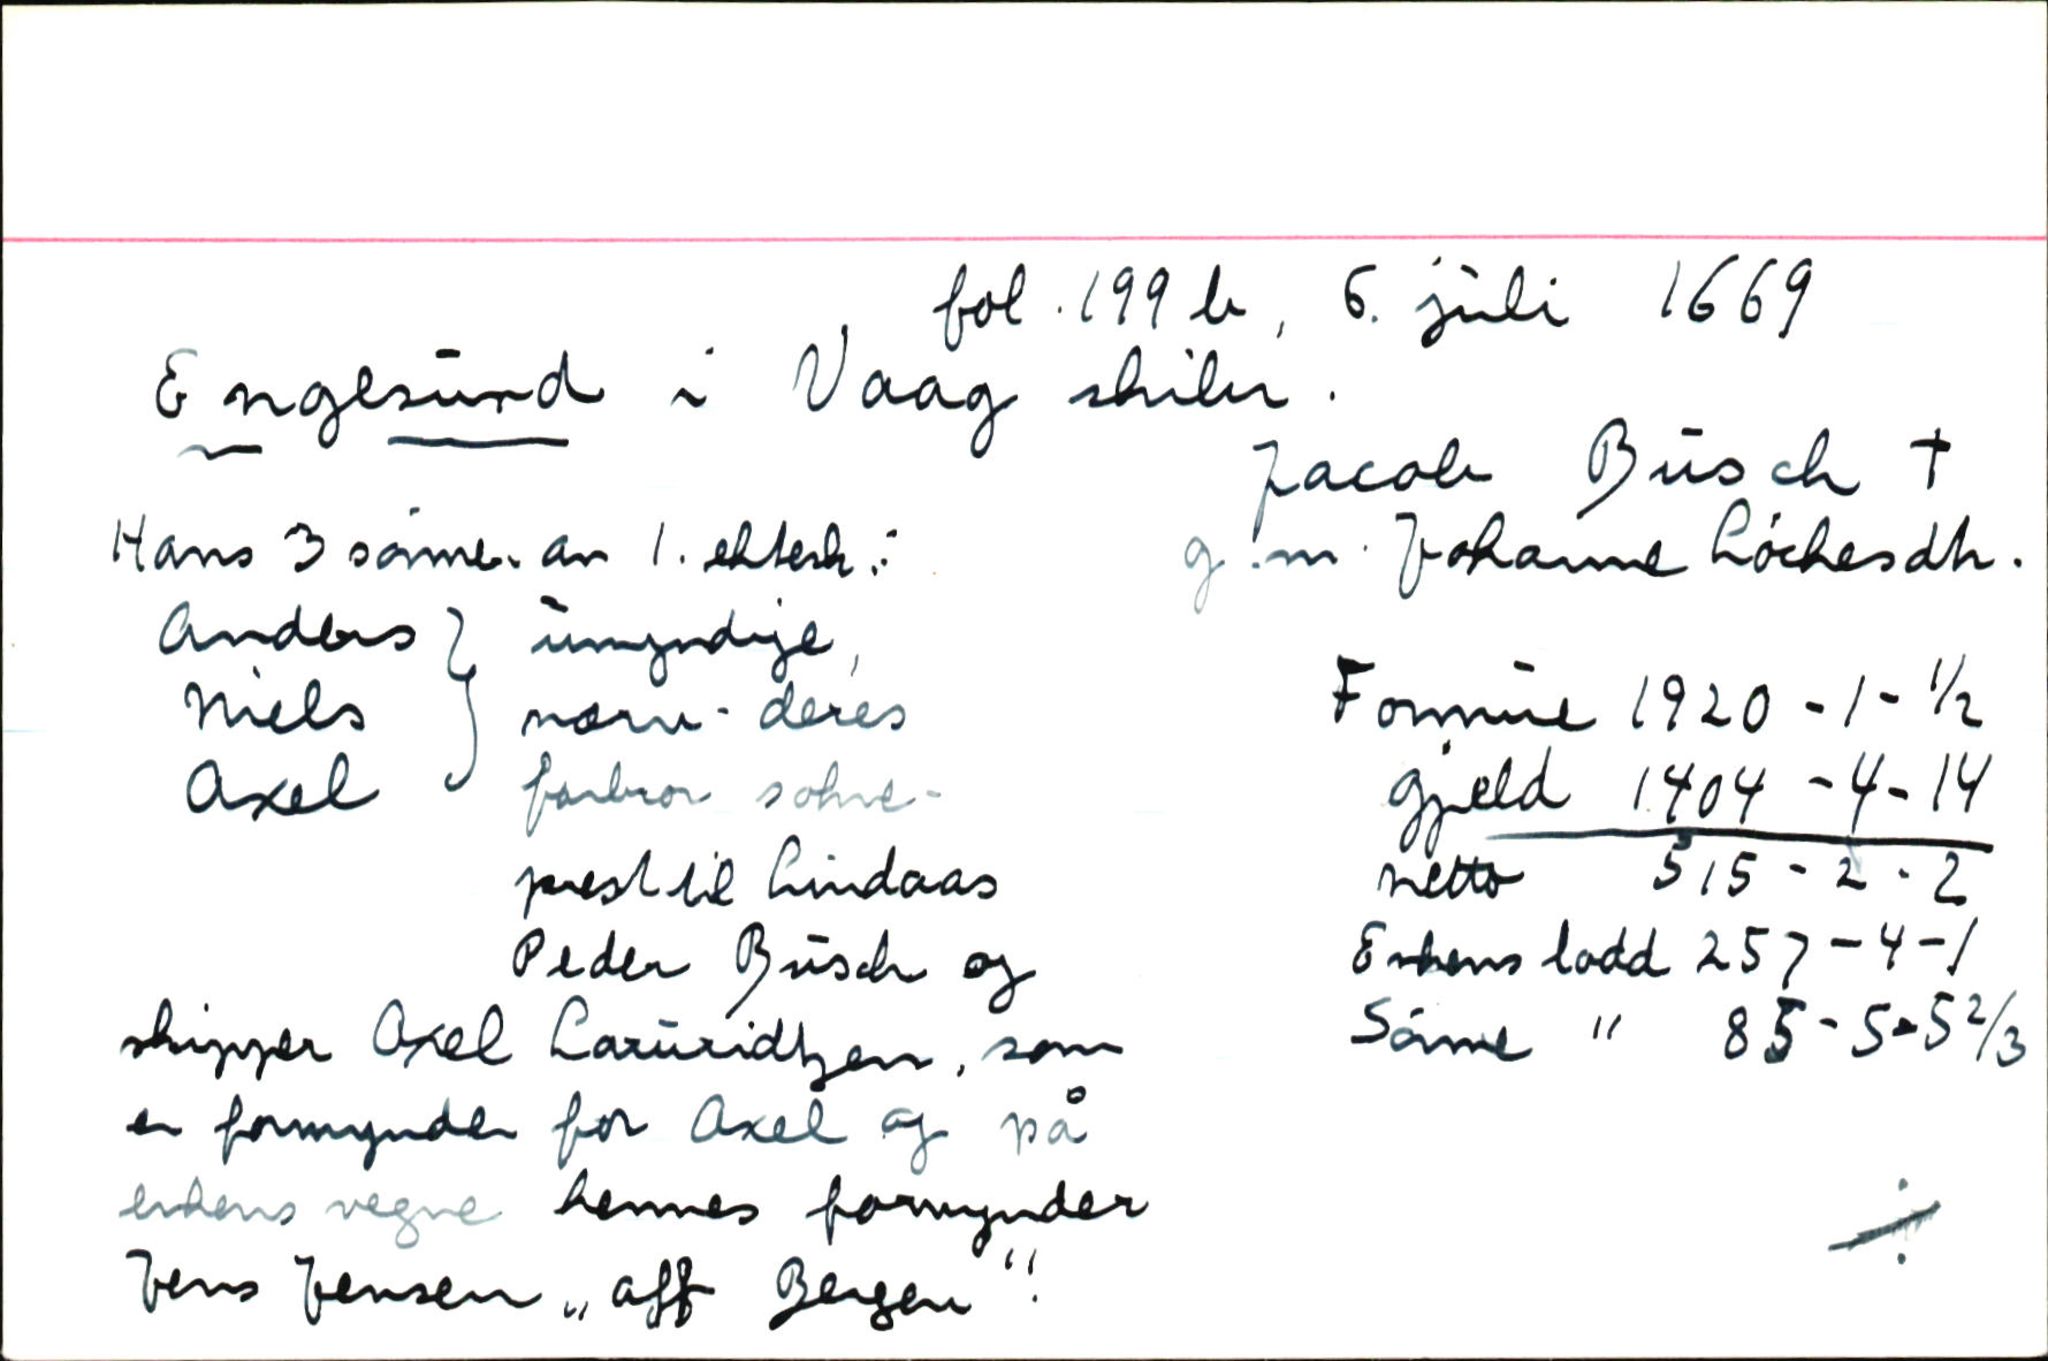 fol. 199 b, 6. juli 1669
Engesund i Vaag skibr.
Jacob Busch †
g.m. Johanne Lochesdtr.
Hans 3 sönner av 1. ektesk.:
Anders } umyndige,
Niels nærv. deres
Axel farbror sokne-
prest til Lindaas
Peder Busch og
skipper Axel Lauridtzen, som
er formynder for Axel og på
enkens vegne hennes formynder
Jens Jensen „aff Bergen".
Formue 1920 - 1 - 1/2
gjeld 1404 - 4 - 14
netto 515 - 2 - 2
Enkens lodd 257 - 4 - 1
Sönne " 85 - 5 - 5 2/3
÷